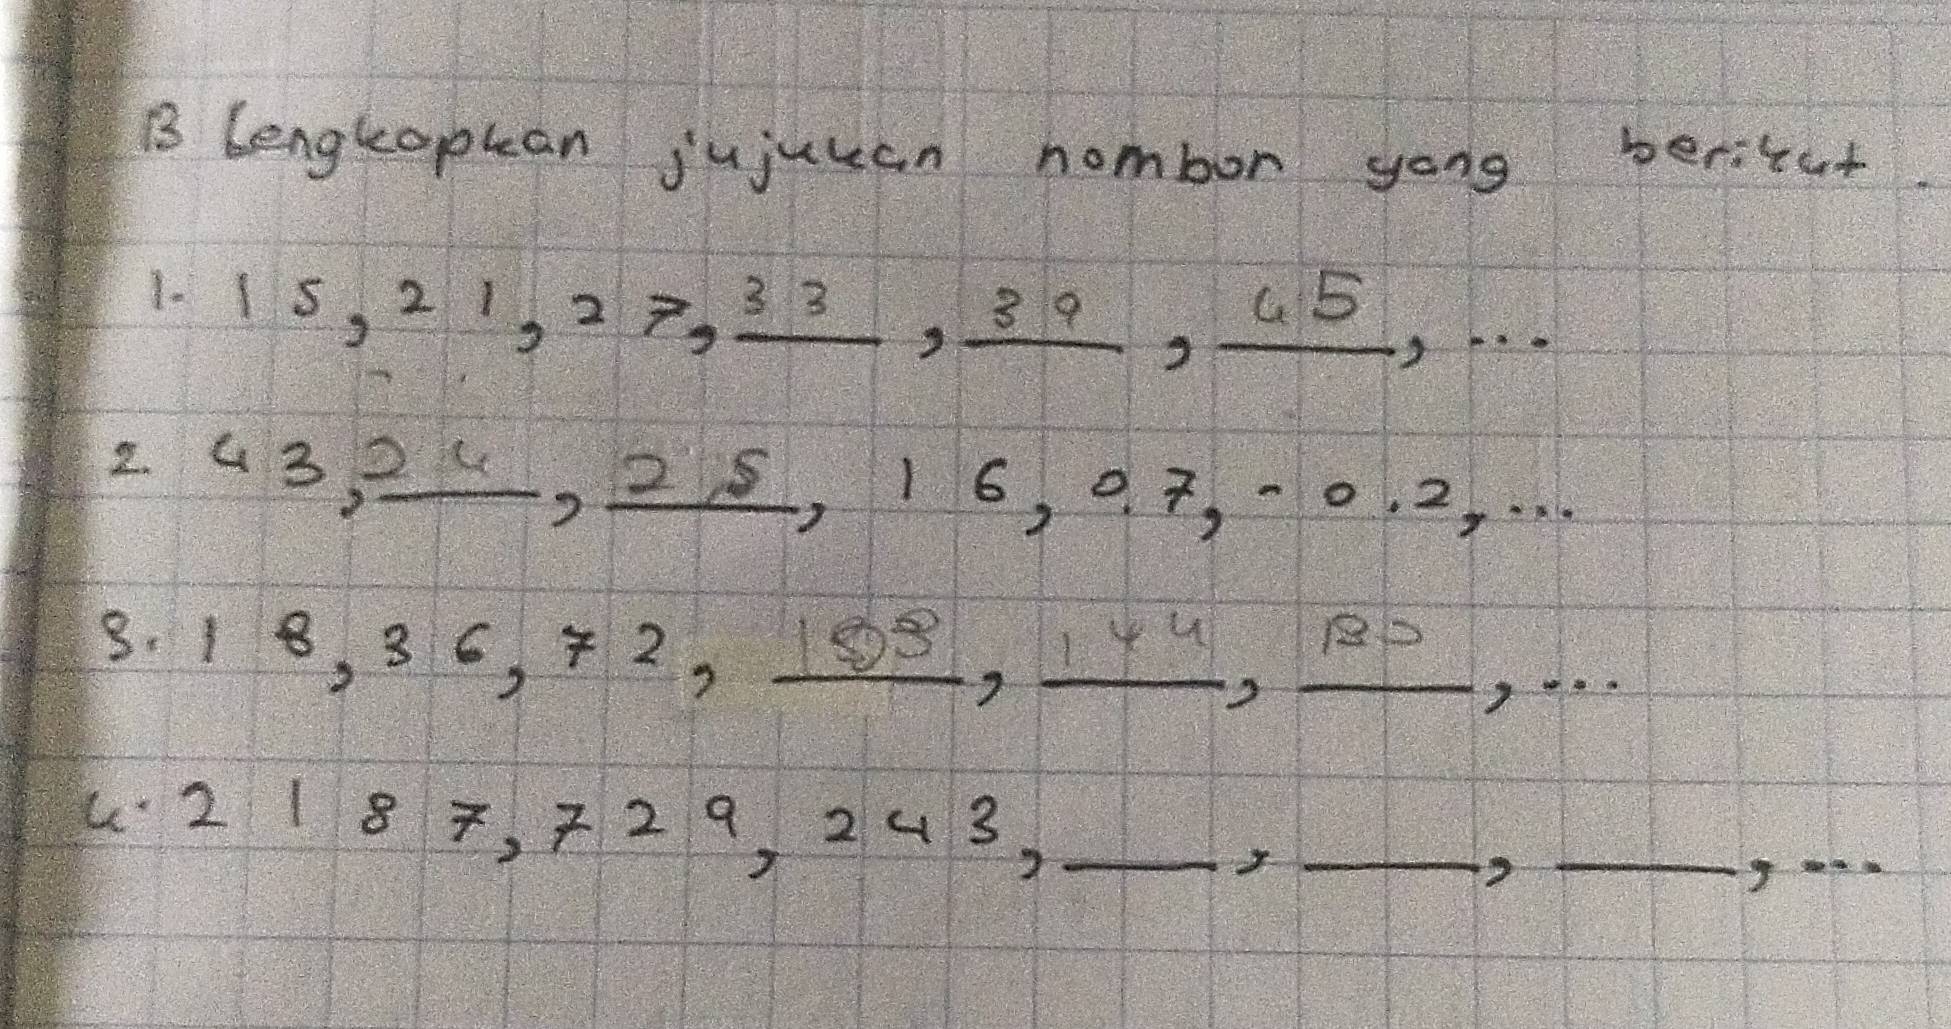 B Lengkapkan jujukan nombor yang berikut.
1. 15, 21, 27, 33, 39, 45, ...
2. 43, 34, 25, 16, 0.7, -0.2, ...
3. 18, 36, 72, 108, 144, 180, ...
4. 2187, 729, 243, ___, ___, ___, ...